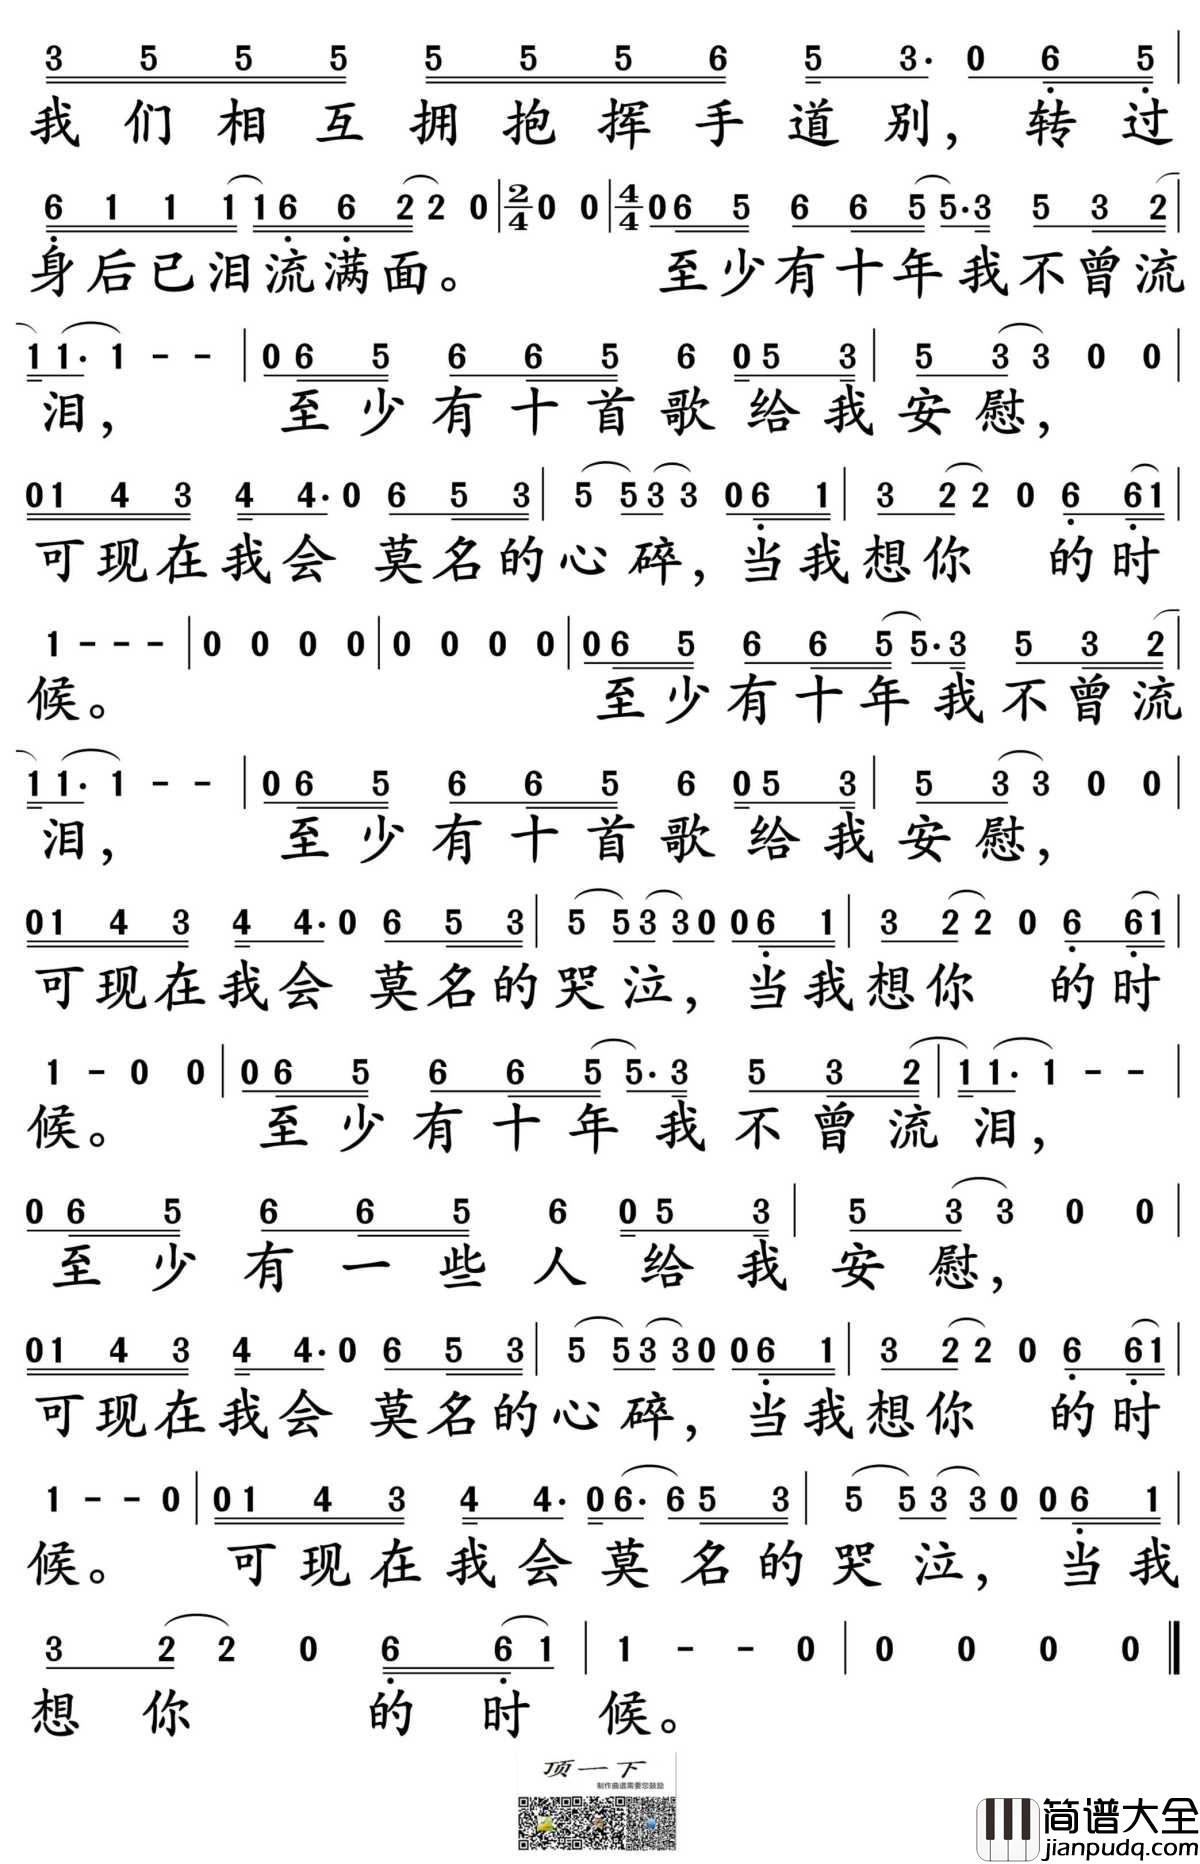 3 5 5 5 5 5 5 6 5 3· 0 6 5 |
我们相互拥抱挥手道别，转过
6 1 1 1 1 6 6 2 2 0 | 2/4 0 0 | 4/4 0 6 5 6 6 5 5· 3 5 3 2 |
身后已泪流满面。 至少有十年我不曾流
1 1· 1 - - | 0 6 5 6 6 5 6 0 5 3 | 5 3 3 0 0 |
泪， 至少有十首歌给我安慰，
0 1 4 3 4 4· 0 6 5 3 | 5 5 3 3 0 6 1 | 3 2 2 0 6 6 1 |
可现在我会 莫名的心碎，当我想你 的时
1 - - - | 0 0 0 0 | 0 0 0 0 | 0 6 5 6 6 5 5· 3 5 3 2 |
候。 至少有十年我不曾流
1 1· 1 - - | 0 6 5 6 6 5 6 0 5 3 | 5 3 3 0 0 |
泪， 至少有十首歌给我安慰，
0 1 4 3 4 4· 0 6 5 3 | 5 5 3 3 0 0 6 1 | 3 2 2 0 6 6 1 |
可现在我会 莫名的哭泣，当我想你 的时
1 - 0 0 | 0 6 5 6 6 5 5· 3 5 3 2 | 1 1· 1 - - |
候。 至少有十年我不曾流泪，
0 6 5 6 6 5 6 0 5 3 | 5 3 3 0 0 |
至少有一些人给我安慰，
0 1 4 3 4 4· 0 6 5 3 | 5 5 3 3 0 0 6 1 | 3 2 2 0 6 6 1 |
可现在我会 莫名的心碎，当我想你 的时
1 - - 0 | 0 1 4 3 4 4· 0 6· 6 5 3 | 5 5 3 3 0 0 6 1 |
候。 可现在我会莫名的哭泣，当我
3 2 2 0 6 6 1 | 1 - - 0 | 0 0 0 0 ‖
想你 的时候。
顶一下
制作曲谱需要您鼓励
简谱大全
jianpudq.com